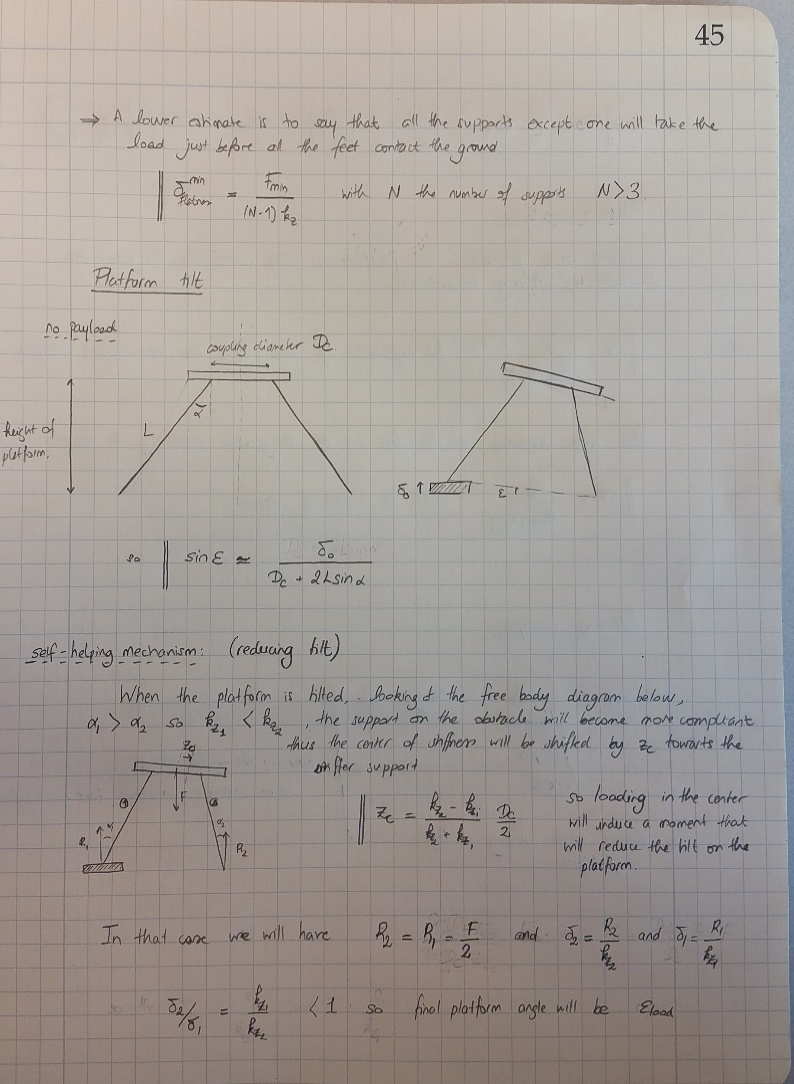 45
⇒ A lower estimate is to say that all the supports except one will take the
load just before all the feet contact the ground
δ_platform^min = F_min / ((N-1) k_z) with N the number of supports N>3.
Platform tilt
no payload
coupling diameter D_c
α
L
height of
platform.
δ_0 ↑ ε
so sin ε ≃ δ_0 / (D_c + 2L sin α)
self-helping mechanism: (reducing tilt)
When the platform is tilted, looking at the free body diagram below,
α_1 > α_2 so k_z1 < k_z2, the support on the obstacle will become more compliant
thus the center of stiffness will be shifted by z_c towards the
stiffer support
z_c
F
① ②
R_1 α_1 α_2 R_2
z_c = (k_z2 - k_z1) / (k_z2 + k_z1) D_c / 2
so loading in the center
will induce a moment that
will reduce the tilt on the
platform.
In that case we will have R_2 = R_1 = F/2 and δ_2 = R_2/k_z2 and δ_1 = R_1/k_z1
δ_2/δ_1 = k_z1/k_z2 < 1 so final platform angle will be ε_load